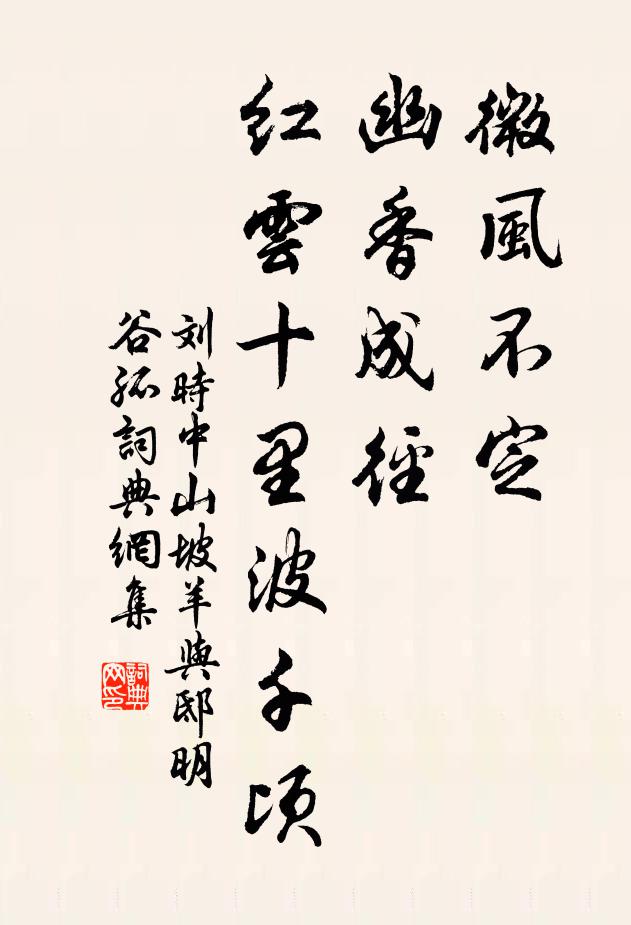 微風不定
幽香成徑
紅雲十里波千頃
刘時中山坡羊與邸明
谷孤詞典網集
詞典
网印